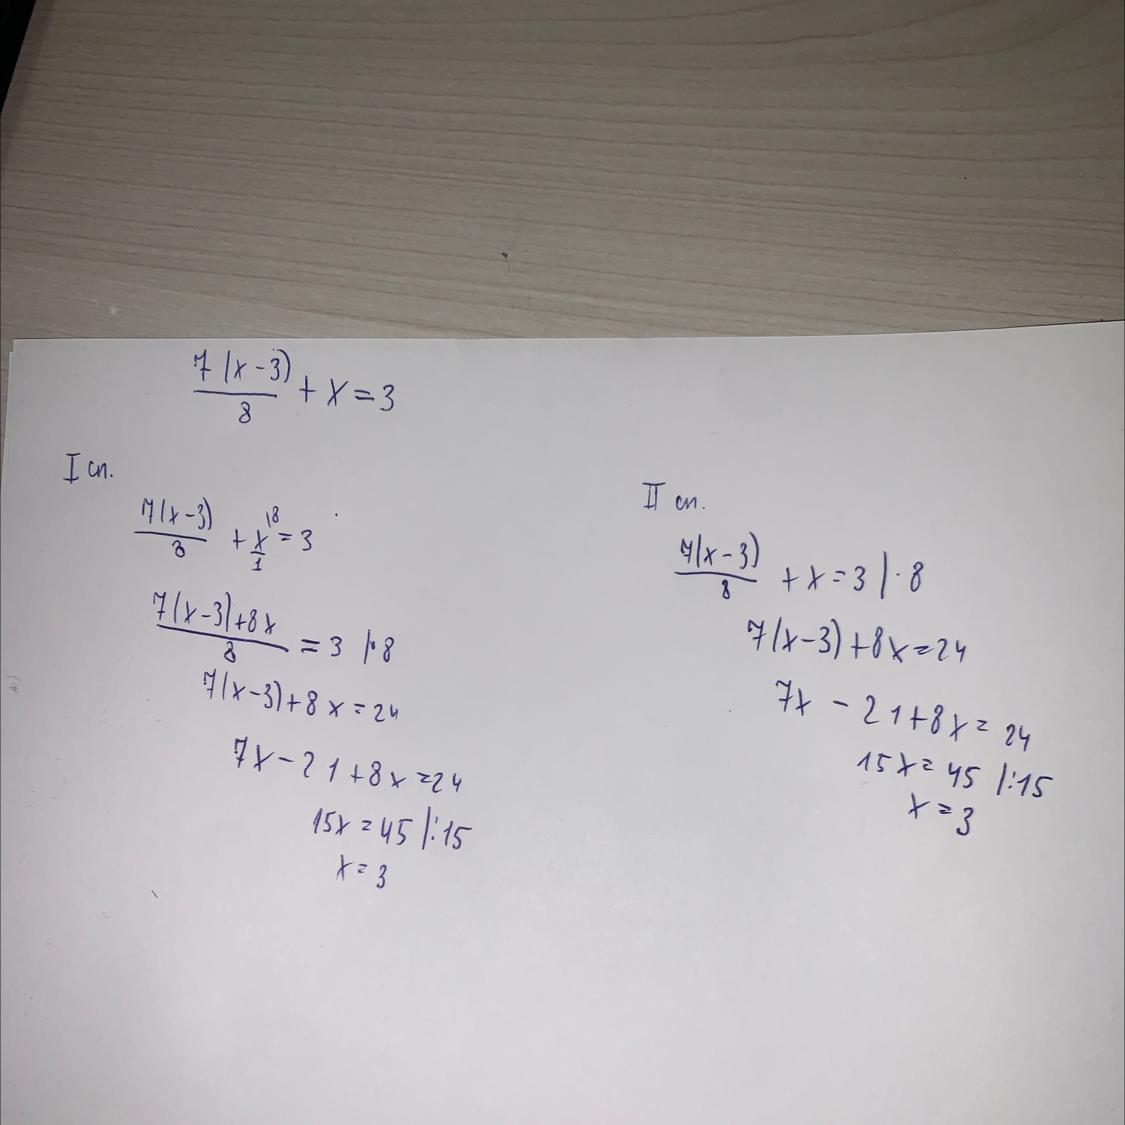 7(x-3)/8 + x = 3
I сп.
7(x-3)/8 + x/1 \8 = 3
7(x-3)+8x/8 = 3 |·8
7(x-3)+8x=24
7x-21+8x=24
15x=45 |:15
x=3
II сп.
7(x-3)/8 + x=3 |·8
7(x-3)+8x=24
7x-21+8x=24
15x=45 |:15
x=3